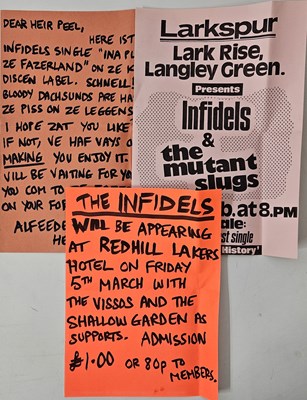 DEAR HEIR PEEL,
HERE IST
INFIDELS SINGLE "INA PL
ZE FAZERLAND" ON ZE K
DISCEN LABEL. SCHNELL!
BLOODY DACHSUNDS ARE HA
ZE PISS ON ZE LEGGENS
I HOPE ZAT YOU LIKE
IF NOT, VE HAF VAYS O
MAKING YOU ENJOY IT.
VILL BE VAITING FOR YO
YOU COM TO ZE
ON YOUR FOR
ALFEEDE
HE
Larkspur
Lark Rise,
Langley Green.
Presents
Infidels
&
the
mutant
slugs
b. at 8.PM
ale:
st single
History'
THE INFIDELS
WILL BE APPEARING
AT REDHILL LAKERS
HOTEL ON FRIDAY
5TH MARCH WITH
THE VISSOS AND THE
SHALLOW GARDEN AS
SUPPORTS. ADMISSION
£1.00 OR 80p TO
MEMBERS.